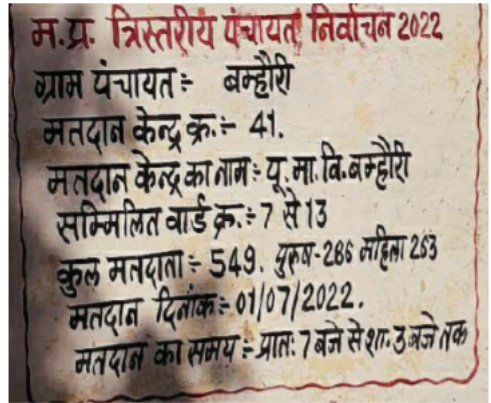 म.प्र. त्रिस्तरीय पंचायत निर्वाचन 2022
ग्राम पंचायत:- बम्हौरी
मतदान केन्द्र क्र.:- 41.
मतदान केन्द्र का नाम:- यू.मा.वि.बम्हौरी
सम्मिलित वार्ड क्र.:- 7 से 13
कुल मतदाता:- 549. पुरुष-286 महिला 263
मतदान दिनांक:- 01/07/2022.
मतदान का समय:- प्रात: 7 बजे से शा. 3 बजे तक